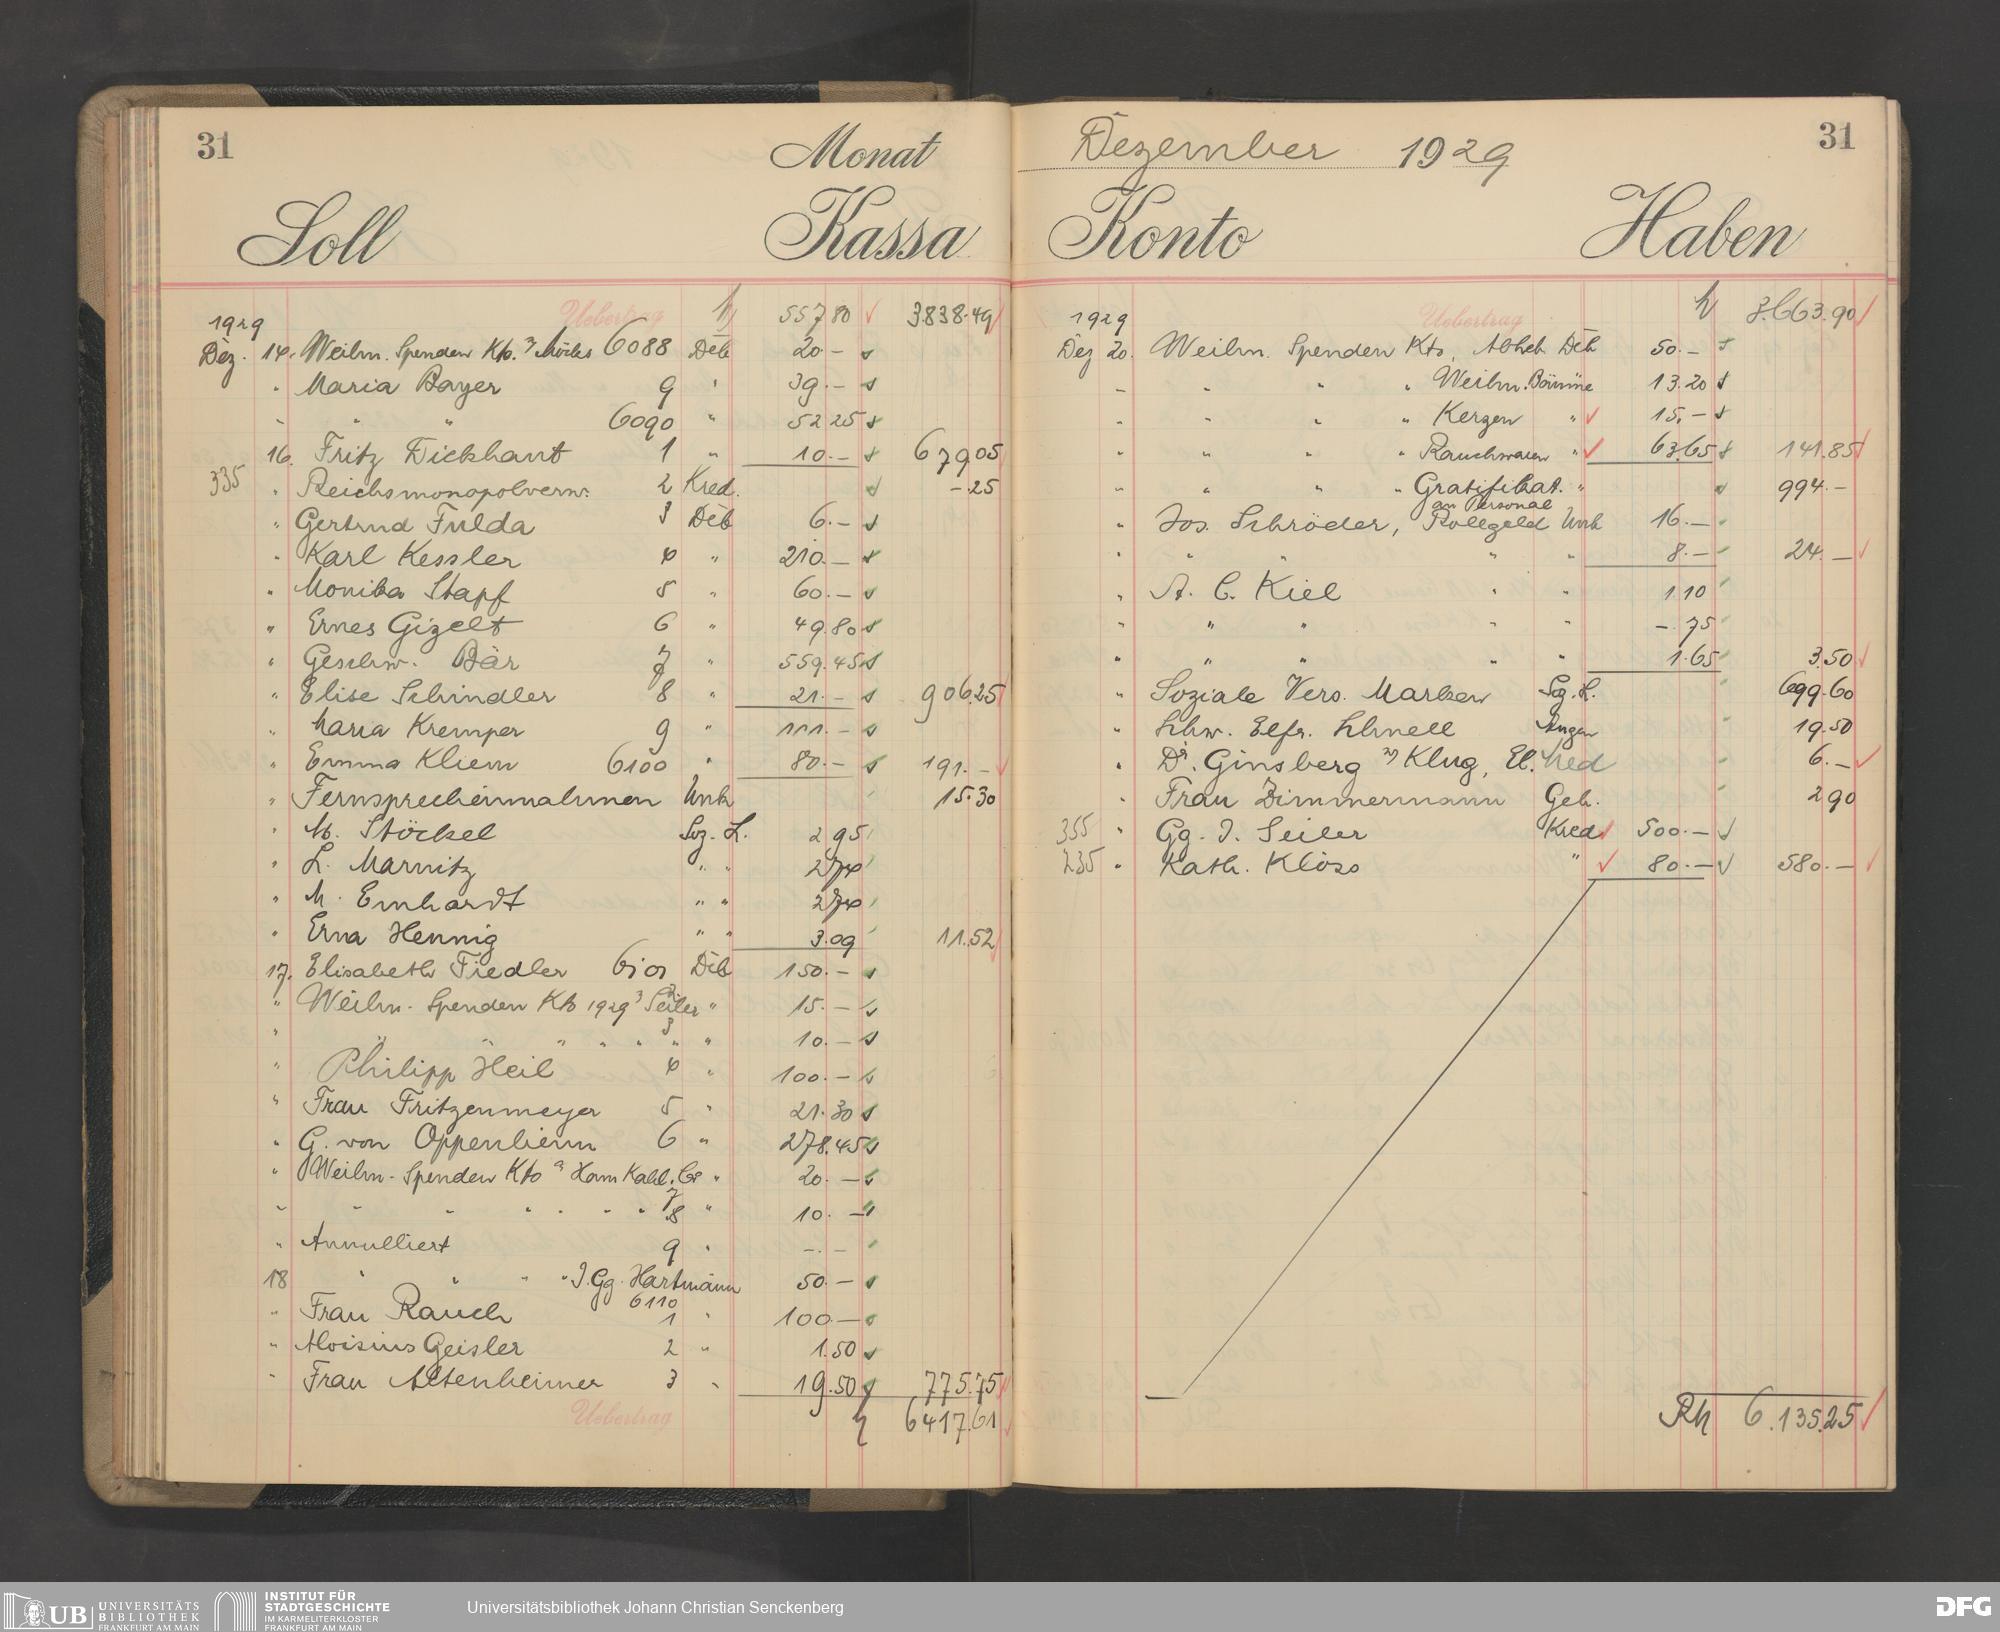 31
Monat
Soll
Kassa
Uebertrag 557 80 3838.49
1929
Dez. 14. Weihn. Spenden Kto. 6088 Deb 20.–
" Maria Bayer 9 " 39.–
" " " 6090 " 52 25
16. Fritz Dickhaut 1 " 10.– 679 05
335 " Reichsmonopolverw. 2 Kred. –.25
" Gertrud Fulda 3 Deb 6.–
" Karl Kessler 4 " 210.–
" Monika Stapf 5 " 60.–
" Ernes Gizelt 6 " 49.80
" Geschw. Bär 7 " 559.45
" Elise Schindler 8 " 21.– 906.25
" Maria Kremper 9 " 111.–
" Emma Kliem 6100 " 80.– 191.–
" Fernsprecheinnahmen Unk 15.30
" M. Stöckel Soz. L. 2 95
" L. Marnitz " " 2 74
" M. Emhardt " " 2 74
" Erna Hennig " " 3.09 11.52
17. Elisabeth Fiedler 6101 Deb 150.–
" Weihn. Spenden Kto 1929 Seiler 2 " 15.–
" " " " " " 3 " 10.–
" Philipp Heil 4 " 100.–
" Frau Fritzenmeyer 5 " 21.30
" G. von Oppenheim 6 " 278.45
" Weihn. Spenden Kto " 20.–
7
" " " " " " " 8 " 10.–
" Annulliert 9 " –.–
18 " " " " J. Gg. Hartmann 50.–
6110
" Frau Rauch 1 " 100.–
" Aloisius Geisler 2 " 1.50
" Frau Altenheimer 3 " 19.50 775.75
Uebertrag 6417.61
31
Dezember 1929
Konto
Haben
Uebertrag 3.663.90
1929
Dez 20. Weihn. Spenden Kto, Abheb. Deb 50.–
" " " " Weihn. Bäume 13.20
" " " " Kerzen " 15.–
" " " " Rauchwaren " 63.65 141.85
" " " " Gratifikat. " 994.–
an Personal
" Jos. Schröder, Rollgeld Unk 16.–
" " " " " 8.– 24.–
" A. C. Kiel " " 1 10
" " " " " –.75
" " " " " 1.65 3.50
" Soziale Vers. Marken Soz. L. 699.60
" Schw. Elfr. Schnell 19.50
" Dr. Ginsberg Klug, El. Kred 6.–
" Frau Zimmermann Geh. 2 90
355 " Gg. J. Seiler Kred 500.–
235 " Kath. Klöss " 80.– 580.–
Rh 6.135.25
UB UNIVERSITÄTS
BIBLIOTHEK
FRANKFURT AM MAIN
INSTITUT FÜR
STADTGESCHICHTE
IM KARMELITERKLOSTER
FRANKFURT AM MAIN
Universitätsbibliothek Johann Christian Senckenberg
DFG